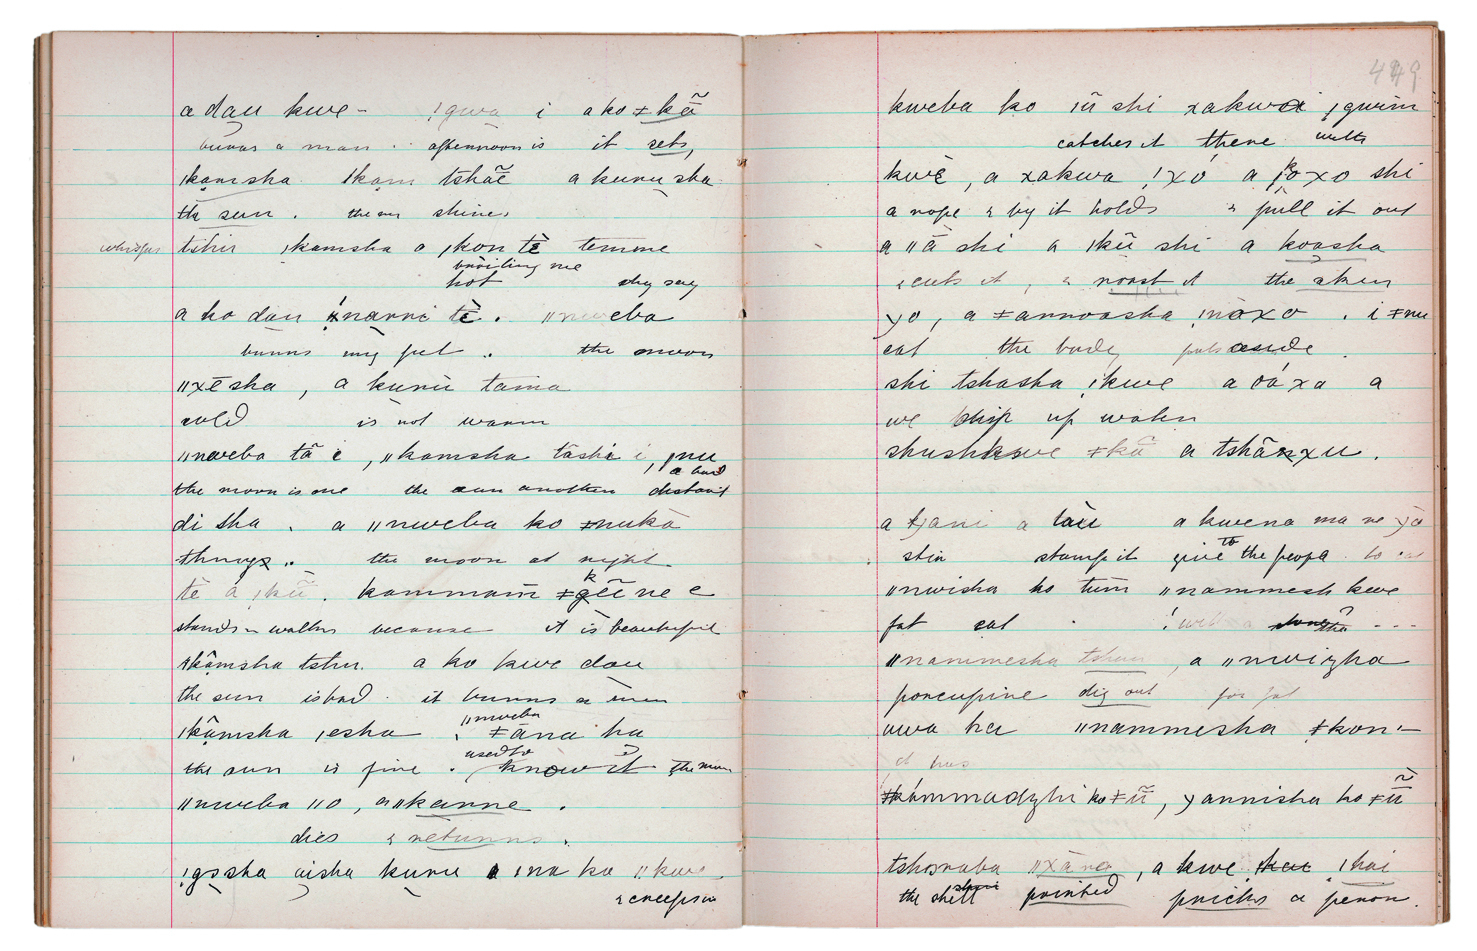 a dau kwe – ǃgwa i a ko ǂkã
burns a man . afternoon is it sets,
ǀkamsha ǀkam tshãĕ a kuru sha
the sun . the sun shines
whisper tshu ǀkamsha a ǀkon tè temme
broiling me
hot they say
a ho dau ǃnanni tè . ǁnweba
burns my feet . the moon
ǁxēsha , a kurù tama
cold is not warm
ǁnweba tã è , ǁkamsha tãshi i, ǀnu
a bad
the moon is one the sun another distant
di sha . a ǁnweba ko ǂnukà
things .. the moon at night
tè a ǀkũ . kammam ǂkĕi ne e
stands & walks because it is beautiful
ǀkâmsha tshu . a ko kwe dau
the sun is bad . it burns a man
ǁnweba
ǀkâmsha ǀesha . ǂāna ha
used to
the sun is fine . know it the moon
ǁnweba ǁo, a ǁkanne .
dies & returns .
ǃgosha aisha kuru a ǀna ka ǁkwe
& creeps in
449
kweba ko ǀũ shi xakwa i ǀgwim
catches it there with
kwè , a xakwa ǃxó a ǀkoxo shi
a rope & by it holds & pull it out
a ǁã shi a ǀkũ shi a koasha
& cuts it , & roast it the skin
yo , a ǂannoasha ǀnàxo . i ǂnu
eat the body puts aside .
shi tshasha ǀkwe a oáxa a
we dip up water
shushkwe ǂkã a tshãnxu .
a tjani a tàu a kwena ma ne yo
stir stamp it give to the people to eat
ǁnwisha ko tum ǁnammesh kwe
fat eat . ǃ
ǁnammesha tshuu , a ǁnwizha
porcupine dig out for fat
uwa ha ǁnammesha ǂkon –
it has
ǂkámmadzhi ko ǂũ , yannisha ko ǂũ
tshoraba ǁxána , a kwe ǀkai
the shell pointed pricks a person .